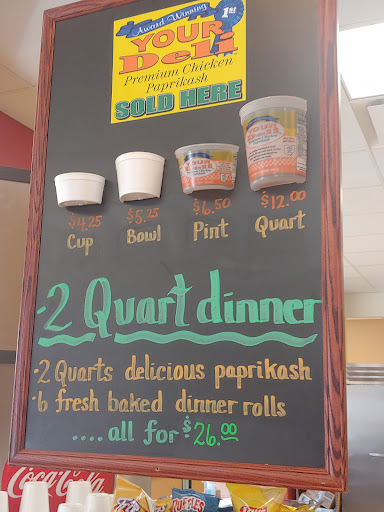 Award Winning
1st
YOUR
Deli
Premium Chicken
Paprikash
SOLD HERE
$4.25 $5.25 $6.50 $12.00
Cup Bowl Pint Quart
-2 Quart dinner
-2 Quarts delicious paprikash
-6 fresh baked dinner rolls
....all for $26.00
Coca-Cola
RUFFLES